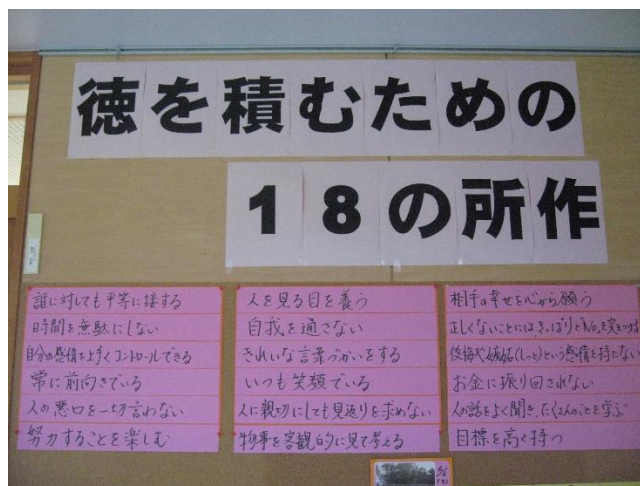 徳を積むための
18の所作
誰に対しても平等に接する
時間を無駄にしない
自分の感情を上手くコントロールできる
常に前向きでいる
人の悪口を一切言わない
努力することを楽しむ
人を見る目を養う
自我を通さない
きれいな言葉づかいをする
いつも笑顔でいる
人に親切にしても見返りを求めない
物事を客観的に見て考える
相手の幸せを心から願う
正しくないことにはきっぱりとNoを突きつける
後悔や嫉妬(しっと)という感情を持たない
お金に振り回されない
人の話をよく聞き、たくさんのことを学ぶ
目標を高く持つ